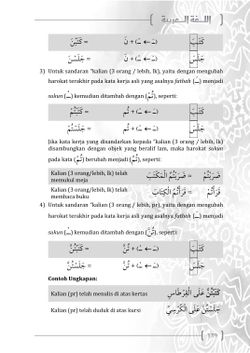 اللغة العربية
كَتَبْنَ = نَ + (ـَ ← ـْ) كَتَبَ
جَلَسْنَ = نَ + (ـَ ← ـْ) جَلَسَ
3) Untuk sandaran "kalian (3 orang / lebih, lk), yaitu dengan mengubah
harakat terakhir pada kata kerja asli yang asalnya fathah (ـَ) menjadi
sukun (ـْ) kemudian ditambah dengan (تُمْ), seperti:
كَتَبْتُمْ = تُمْ + (ـَ ← ـْ) كَتَبَ
جَلَسْتُمْ = تُمْ + (ـَ ← ـْ) جَلَسَ
Jika kata kerja yang disandarkan kepada "kalian (3 orang / lebih, lk)
disambungkan dengan objek yang beralif lam, maka harokat sukun
pada kata (تُمْ) berubah menjadi (تُمُ), seperti:
Kalian (3 orang/lebih, lk) telah
memukul meja
ضَرَبْتُمْ = ضَرَبْتُمُ الْمَكْتَبَ
Kalian (3 orang/lebih, lk) telah
membaca buku
قَرَأْتُمْ = قَرَأْتُمُ الْكِتَابَ
4) Untuk sandaran "kalian (3 orang / lebih, pr), yaitu dengan mengubah
harakat terakhir pada kata kerja asli yang asalnya fathah (ـَ) menjadi
sukun (ـْ) kemudian ditambah dengan (تُنَّ), seperti:
كَتَبْتُنَّ = تُنَّ + (ـَ ← ـْ) كَتَبَ
جَلَسْتُنَّ = تُنَّ + (ـَ ← ـْ) جَلَسَ
Contoh Ungkapan:
Kalian (pr) telah menulis di atas kertas كَتَبْتُنَّ عَلَى الْقِرْطَاسِ
Kalian (pr) telah duduk di atas kursi جَلَسْتُنَّ عَلَى الْكُرْسِيِّ